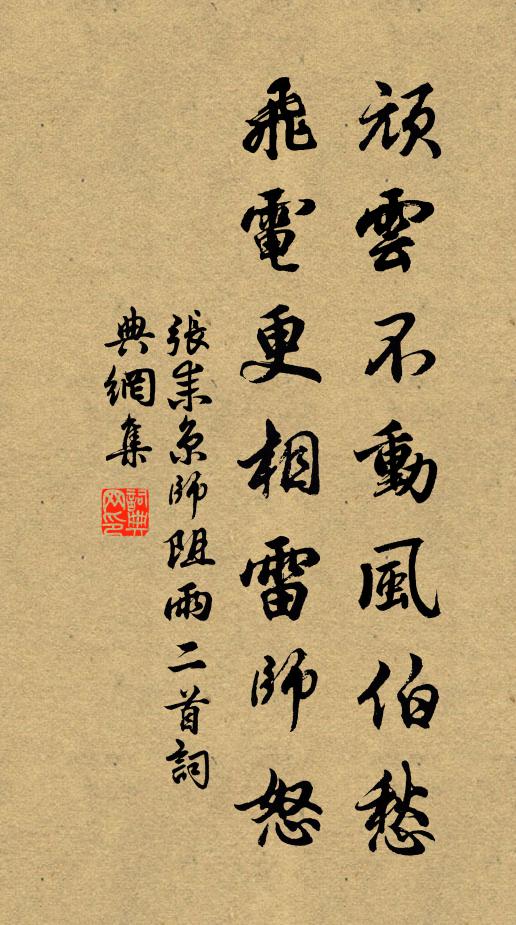 頑雲不動風伯愁
飛電更相雷師怒
張耒京師阻雨二首詞
典網集
詞典网印